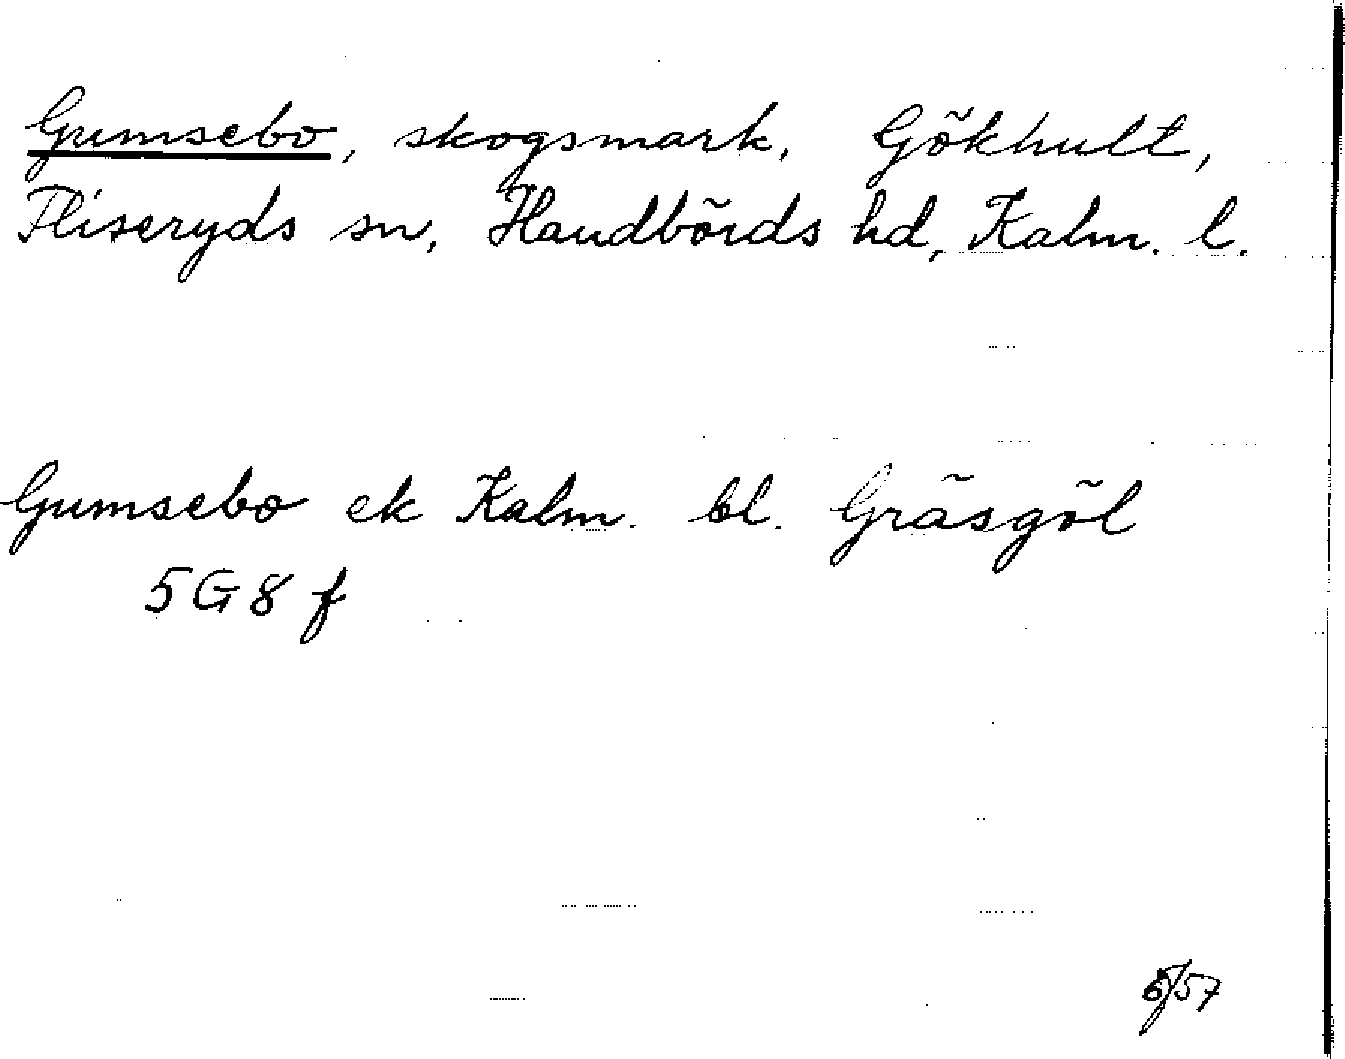 Gumsebo, skogsmark, Gökhult,
Fliseryds sn, Handbörds hd, Kalm. l.
Gumsebo ek Kalm. bl. Gräsgöl
5G8f
6/57